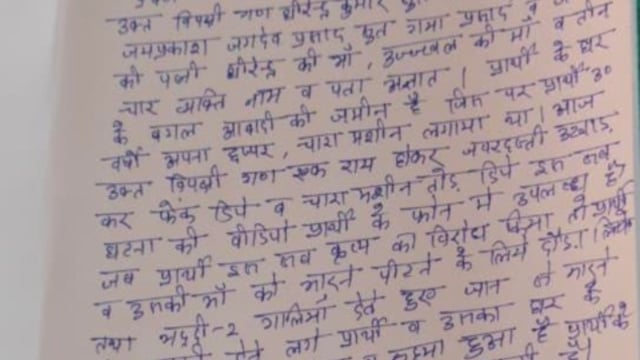 उक्त विपक्षी गण धीरेन्द्र कुमार
जयप्रकाश जगदेव प्रसाद पुत्र गामा प्रसाद व
की पत्नी धीरेन्द्र की माँ, उज्ज्वल की माँ व तीन
चार व्यक्ति नाम व पता अज्ञात। प्रार्थी के घर
के बगल आबादी की जमीन है जिस पर प्रार्थी 30
वर्षो अपना छप्पर, चारा मशीन लगाया था। आज
उक्त विपक्षी गण एक राय होकर जबरदस्ती उखाड़
कर फेंक दिये व चारा मशीन तोड़ दिये इस सब
घटना की वीडियो प्रार्थी के फोन में उपलब्ध है
जब प्रार्थी इस सब कृत्य का विरोध किया तो प्रार्थी
व उसकी माँ को मारने पीटने के लिये दौड़ा।
तथा भद्दी-2 गालियाँ देते हुए जान से मारने
देते लगे प्रार्थी व उसका घर के
हुआ है प्रार्थी के